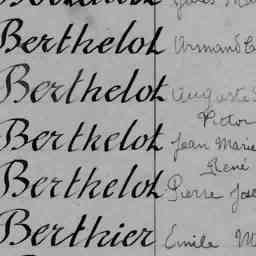 Berthelot Armand
Berthelot Auguste
Victor
Berthelot Jean Marie
René
Berthelot Pierre
Berthier Emile